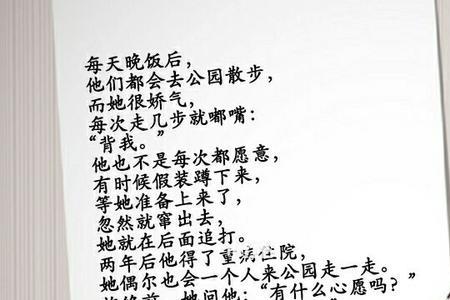 每天晚饭后，
他们都会去公园散步，
而她很娇气，
每次走几步就嘟嘴：
“背我。”
他也不是每次都愿意，
有时候假装蹲下来，
等她准备上来了，
忽然就窜出去，
她就在后面追打。
两年后他得了重病住院，
她偶尔也会一个人来公园走一走。
她问他：“有什么心愿吗？”